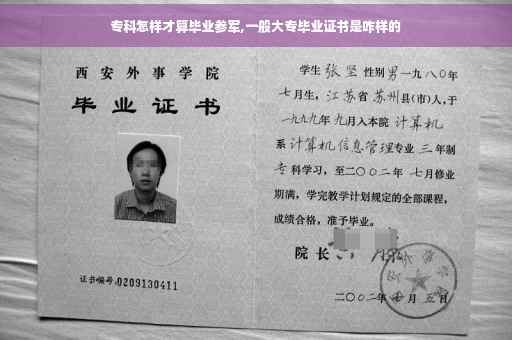 专科怎样才算毕业参军,一般大专毕业证书是咋样的
西安外事学院
毕业证书
证书编号:0209130411
学生 张坚 性别 男 一九八〇年
七月生,江苏省 苏州县(市)人,于
一九九九年 九月入本院 计算机
系 计算机信息管理专业 三 年制
专科学习,至二〇〇二年 七月修业
期满,学完教学计划规定的全部课程,
成绩合格,准予毕业。
院长
二〇〇二年 七月 五日